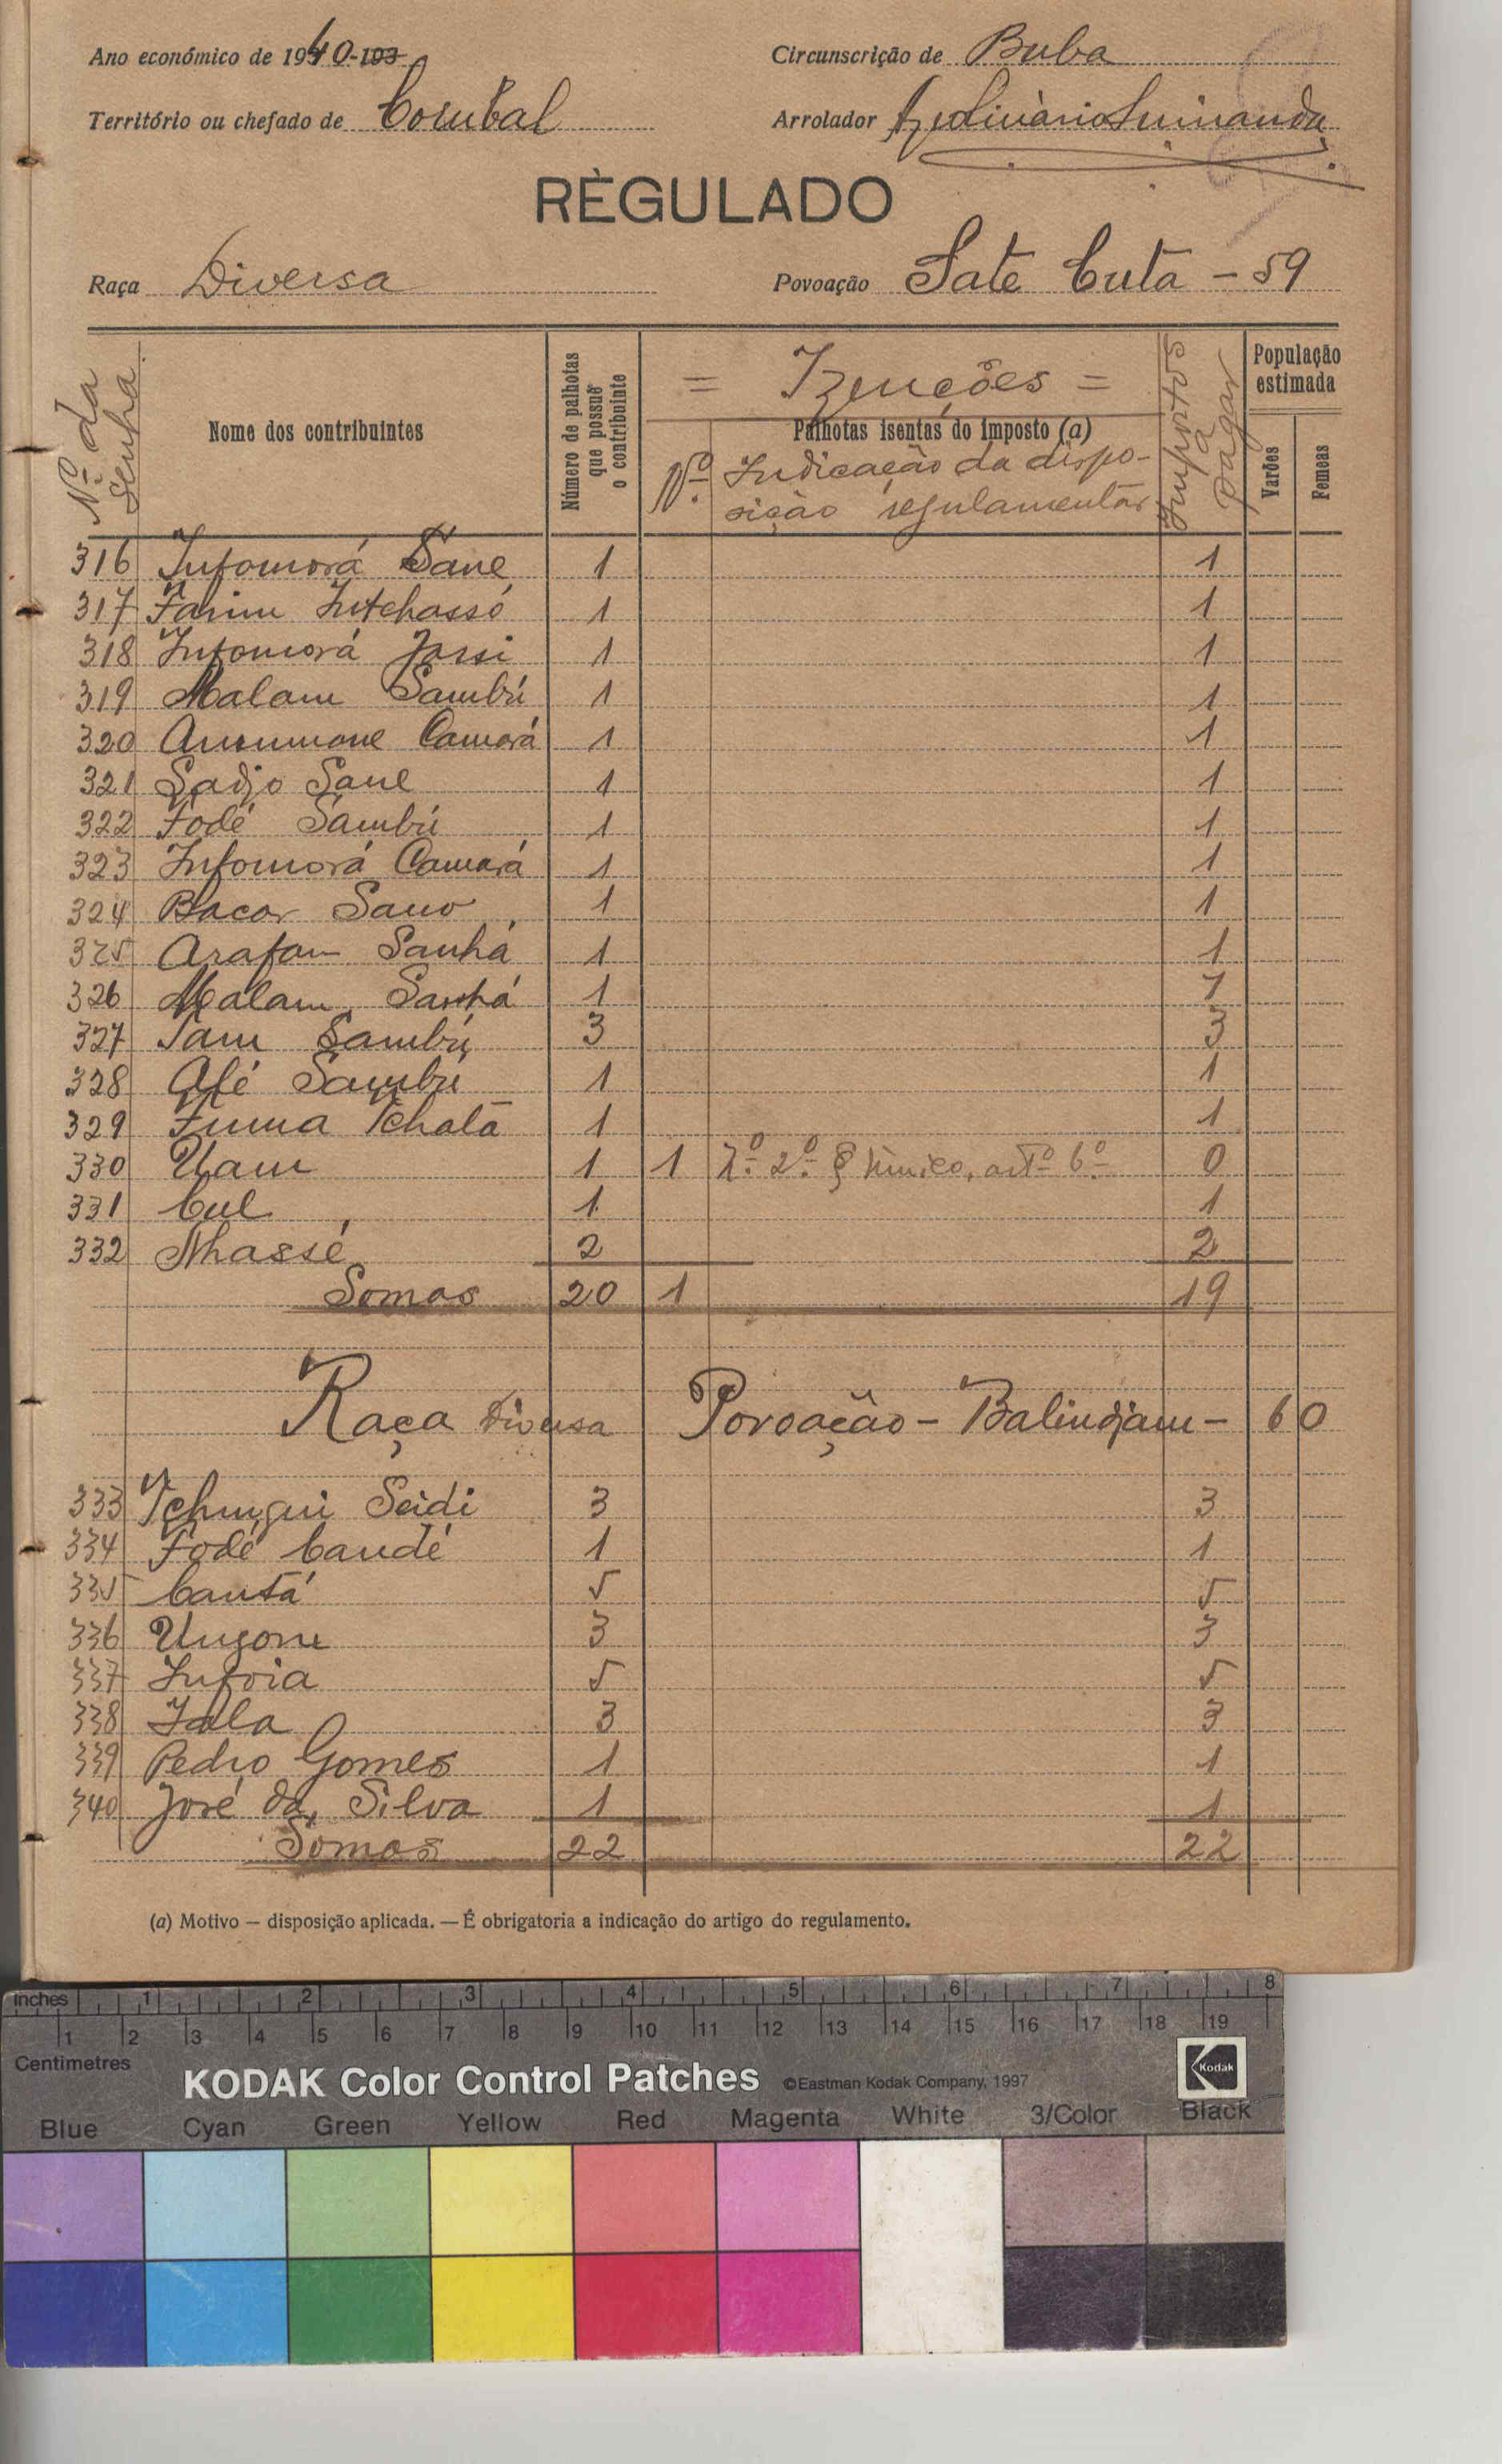 Ano económico de 1940-193
Circunscrição de Buba
Território ou chefado de Corubal
Arrolador
RÈGULADO
Raça Diversa
Povoação Sate Cuta - 59
Nº da Senha
Nome dos contribuintes
Número de palhotas que possuë o contribuinte
= Izenções =
Palhotas isentas do imposto (a)
Nº Indicação da disposição regulamentar
Impostos a pagar
População estimada
Varões
Femeas
316 Infomorá Sane 1 1
317 Farim Intchassó 1 1
318 Infomorá Jassi 1 1
319 Malam Sambú 1 1
320 Camará 1 1
321 Sadjo Sane 1 1
322 Fodé Sambú 1 1
323 Infomorá Camará 1 1
324 Bacar Sano 1 1
325 Arafam Sanhá 1 1
326 Malam Sanhá 1 1
327 Sam Sambú 3 3
328 Alé Sambú 1 1
329 Tchalá 1 1
330 Uam 1 1 Nº 2º § único, artº 6º 0
331 Cul 1 1
332 Nhassé 2 2
Somas 20 1 19
Raça Diversa Povoação - Balindjam - 60
333 Seidi 3 3
334 Fodé Candé 1 1
335 Cantá 5 5
336 Ungone 3 3
337 Infoia 5 5
338 Jala 3 3
339 Pedro Gomes 1 1
340 José da Silva 1 1
Somas 22 22
(a) Motivo — disposição aplicada. — É obrigatoria a indicação do artigo do regulamento.
inches 1 2 3 4 5 6 7 8
1 2 3 4 5 6 7 8 9 10 11 12 13 14 15 16 17 18 19
Centimetres
KODAK Color Control Patches ©Eastman Kodak Company, 1997
Kodak
Blue Cyan Green Yellow Red Magenta White 3/Color Black